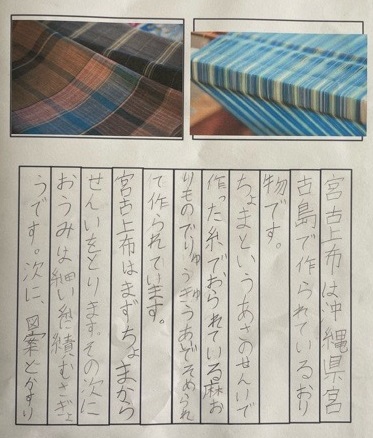 宮古上布は沖縄県宮
古島で作られているおり
物です。
ちょまというあさのせんいで
作った糸でおられている麻お
りものでりゅうきゅうあいでそめられ
て作られています。
宮古上布はまずちょまから
せんいをとります。その次に
おうみは細い糸に績むさぎょ
うです。次に、図案とかすり